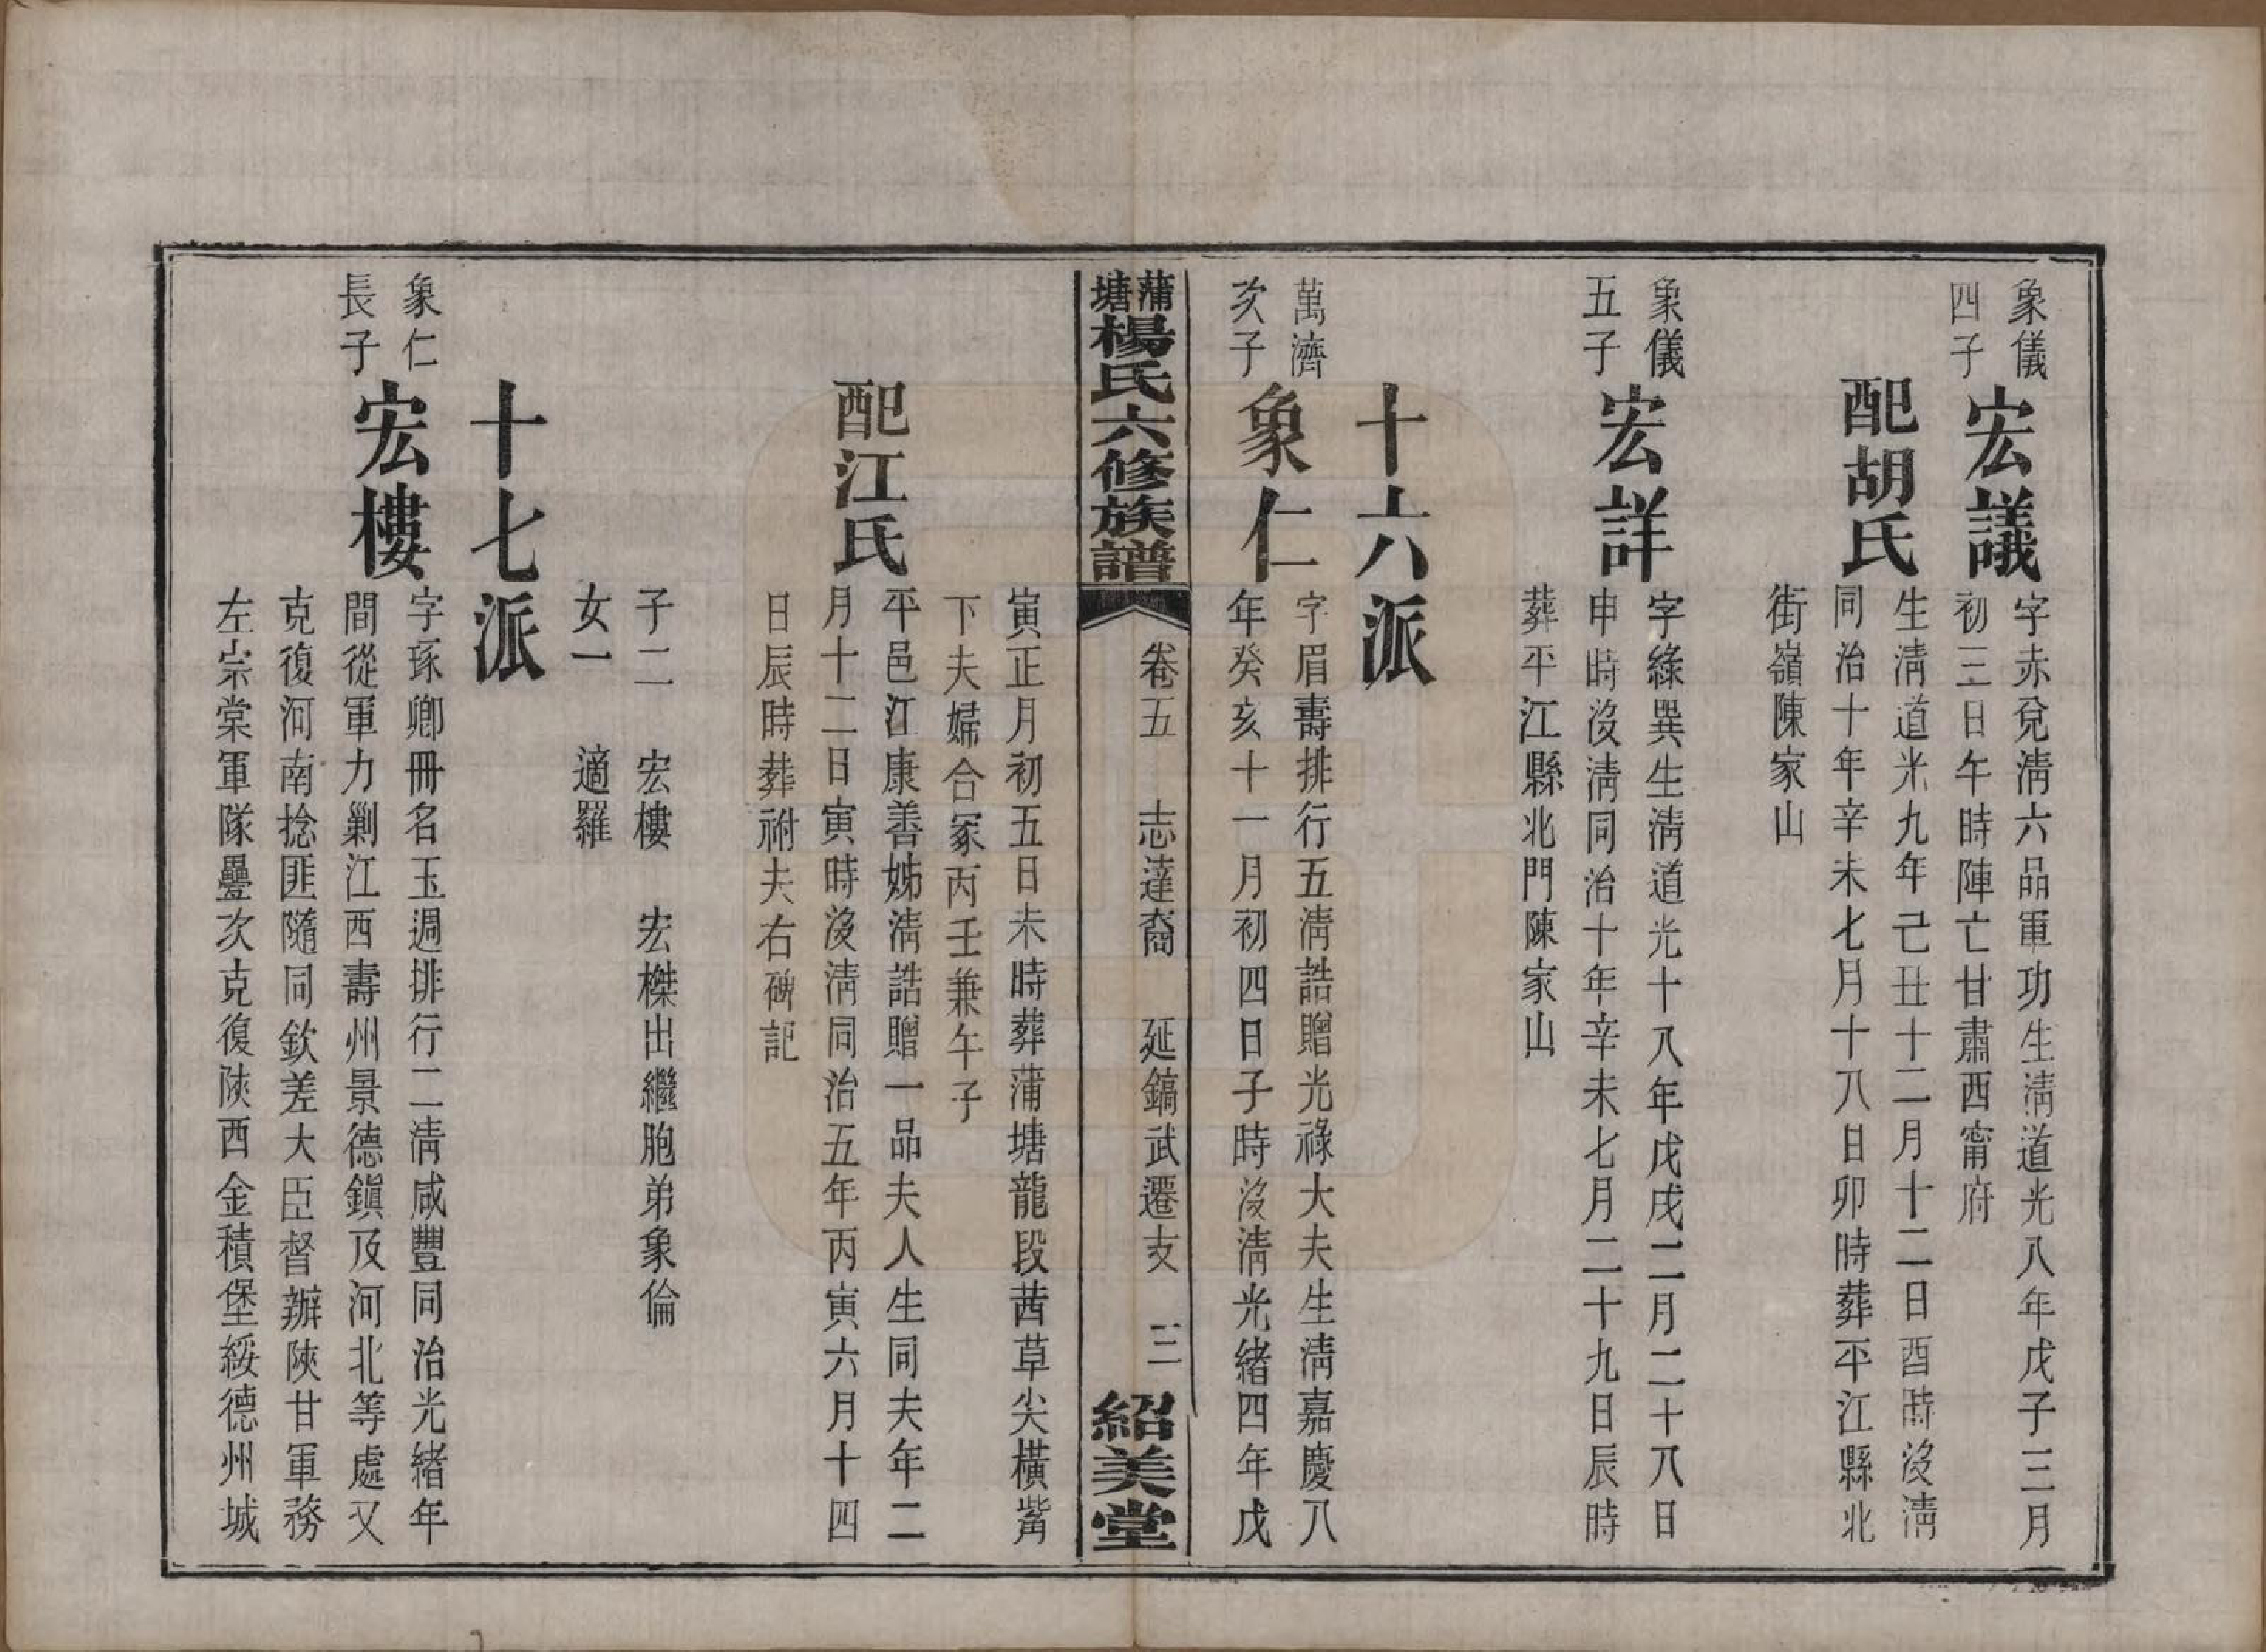 象儀
四子
宏議
字赤兌淸六品軍功生淸道光八年戊子三月
初三日午時陣亡甘肅西甯府
配胡氏
生淸道光九年己丑十二月十二日酉時沒淸
同治十年辛未七月十八日卯時葬平江縣北
街嶺陳家山
象儀
五子
宏詳
字綠異生淸道光十八年戊戌二月二十八日
申時沒淸同治十年辛未七月二十九日辰時
葬平江縣北門陳家山
十六派
萬濟
次子
象仁
字眉壽排行五淸誥贈光祿大夫生淸嘉慶八
年癸亥十一月初四日子時沒淸光緒四年戊
蒲塘楊氏六修族譜
卷五 志達裔 延鎬武遷支 三
紹美堂
寅正月初五日未時葬蒲塘龍段茜草尖橫觜
下夫婦合冢丙壬兼午子
配江氏
平邑江康善姊淸誥贈一品夫人生同夫年二
月十二日寅時沒淸同治五年丙寅六月十四
日辰時葬祔夫右碑記
子二 宏樓 宏榤出繼胞弟象倫
女一 適羅
十七派
象仁
長子
宏樓
字琢卿冊名玉週排行二淸咸豐同治光緒年
間從軍力剿江西壽州景德鎭及河北等處又
克復河南捻匪隨同欽差大臣督辦陝甘軍務
左宗棠軍隊疊次克復陝西金積堡綏德州城